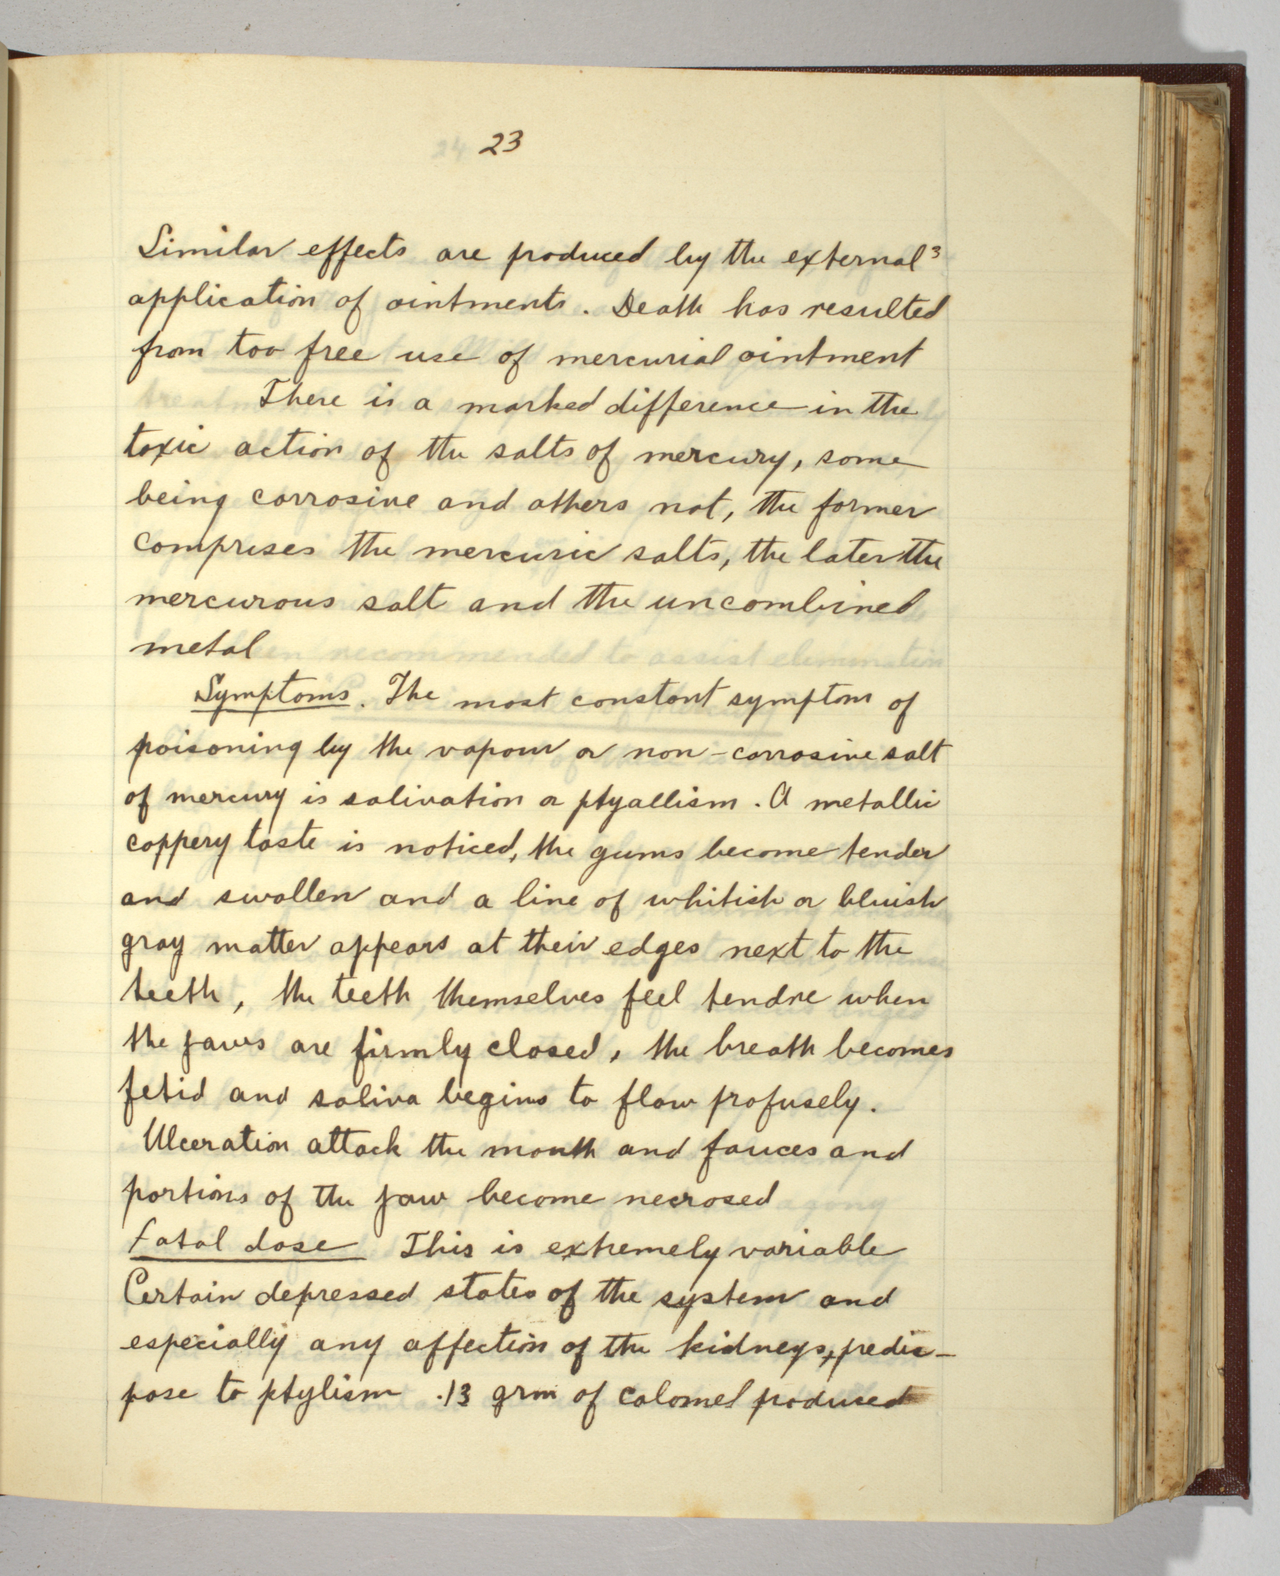 23
Similar effects are produced by the external 3
application of ointments. Death has resulted
from too free use of mercurial ointment
There is a marked difference in the
toxic action of the salts of mercury, some
being corrosive and others not, the former
comprises the mercuric salts, the later the
mercurous salt and the uncombined
metal
Symptoms. The most constant symptom of
poisoning by the vapour or non-corrosive salt
of mercury is salivation or ptyallism. A metallic
coppery taste is noticed, the gums become tender
and swollen and a line of whitish or bluish
gray matter appears at their edges next to the
teeth, the teeth themselves feel tendre when
the jaws are firmly closed, the breath becomes
fetid and saliva begins to flow profusely.
Ulceration attack the mouth and fauces and
portions of the jaw become necrosed
Fatal dose This is extremely variable
Certain depressed states of the system and
especially any affection of the kidneys, predis-
pose to ptylism .13 grm of calomel produced